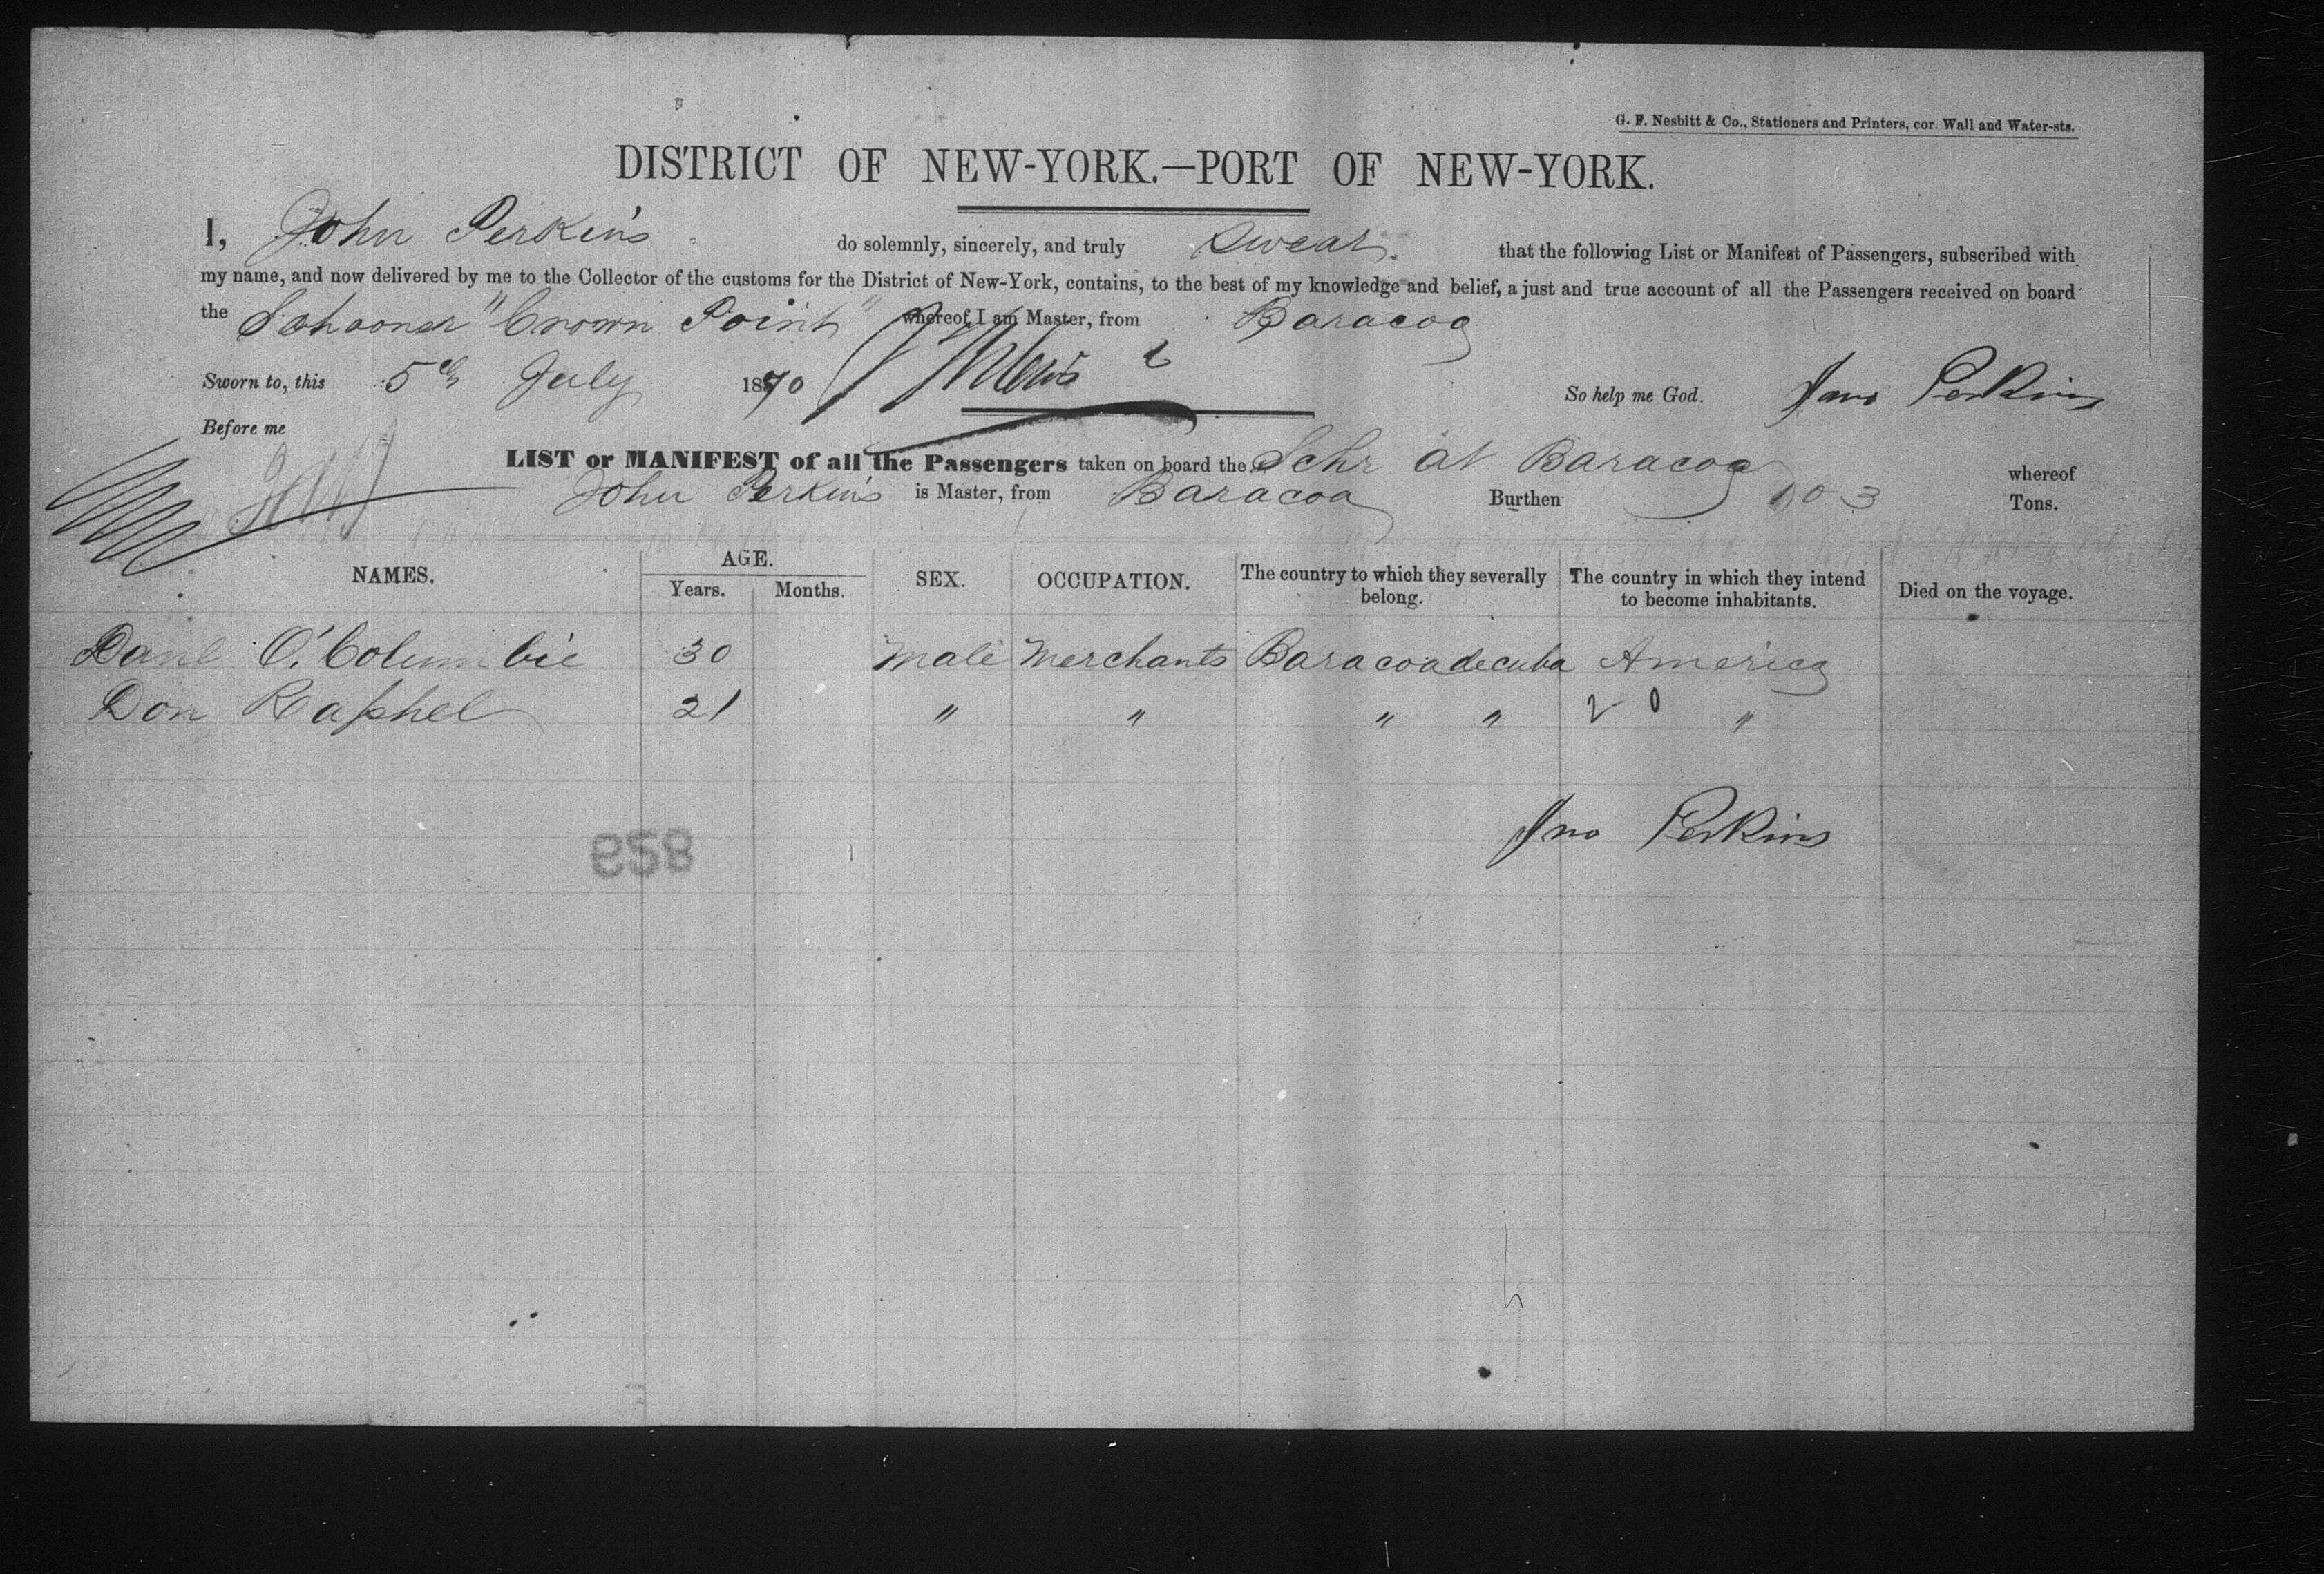 G. F. Nesbitt & Co., Stationers and Printers, cor. Wall and Water-sts.
DISTRICT OF NEW-YORK.—PORT OF NEW-YORK.
I, John Perkins do solemnly, sincerely, and truly Swear that the following List or Manifest of Passengers, subscribed with
my name, and now delivered by me to the Collector of the customs for the District of New-York, contains, to the best of my knowledge and belief, a just and true account of all the Passengers received on board
the Schooner "Crown Point" whereof I am Master, from Baracoa
Sworn to, this 5th July 1870 So help me God. Jno Perkins
Before me
LIST or MANIFEST of all the Passengers taken on board the Schr at Baracoa whereof
John Perkins is Master, from Baracoa Burthen 103 Tons.
NAMES. AGE. Years. Months. SEX. OCCUPATION. The country to which they severally belong. The country in which they intend to become inhabitants. Died on the voyage.
Danl O'Columbie 30 Male Merchants Baracoa de cuba America
Don Raphel 21 " " " " 20 "
Jno Perkins
859